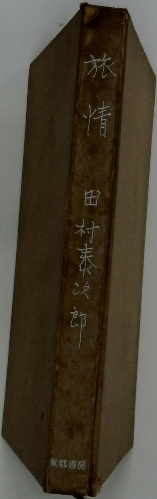 旅情
田村泰次郎
東都書房